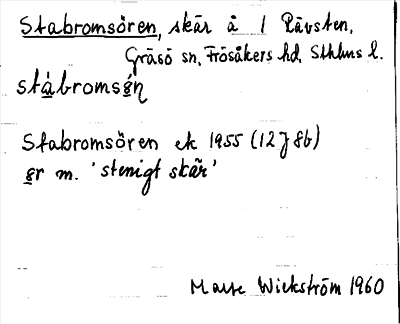 Stabromsören, skär å 1 Rävsten,
Gräsö sn, Frösåkers hd, Sthlms l.
stàbromsé̩n̩
Stabromsören ek 1955 (12J 8b)
gr m. 'stenigt skär'
Wickström 1960